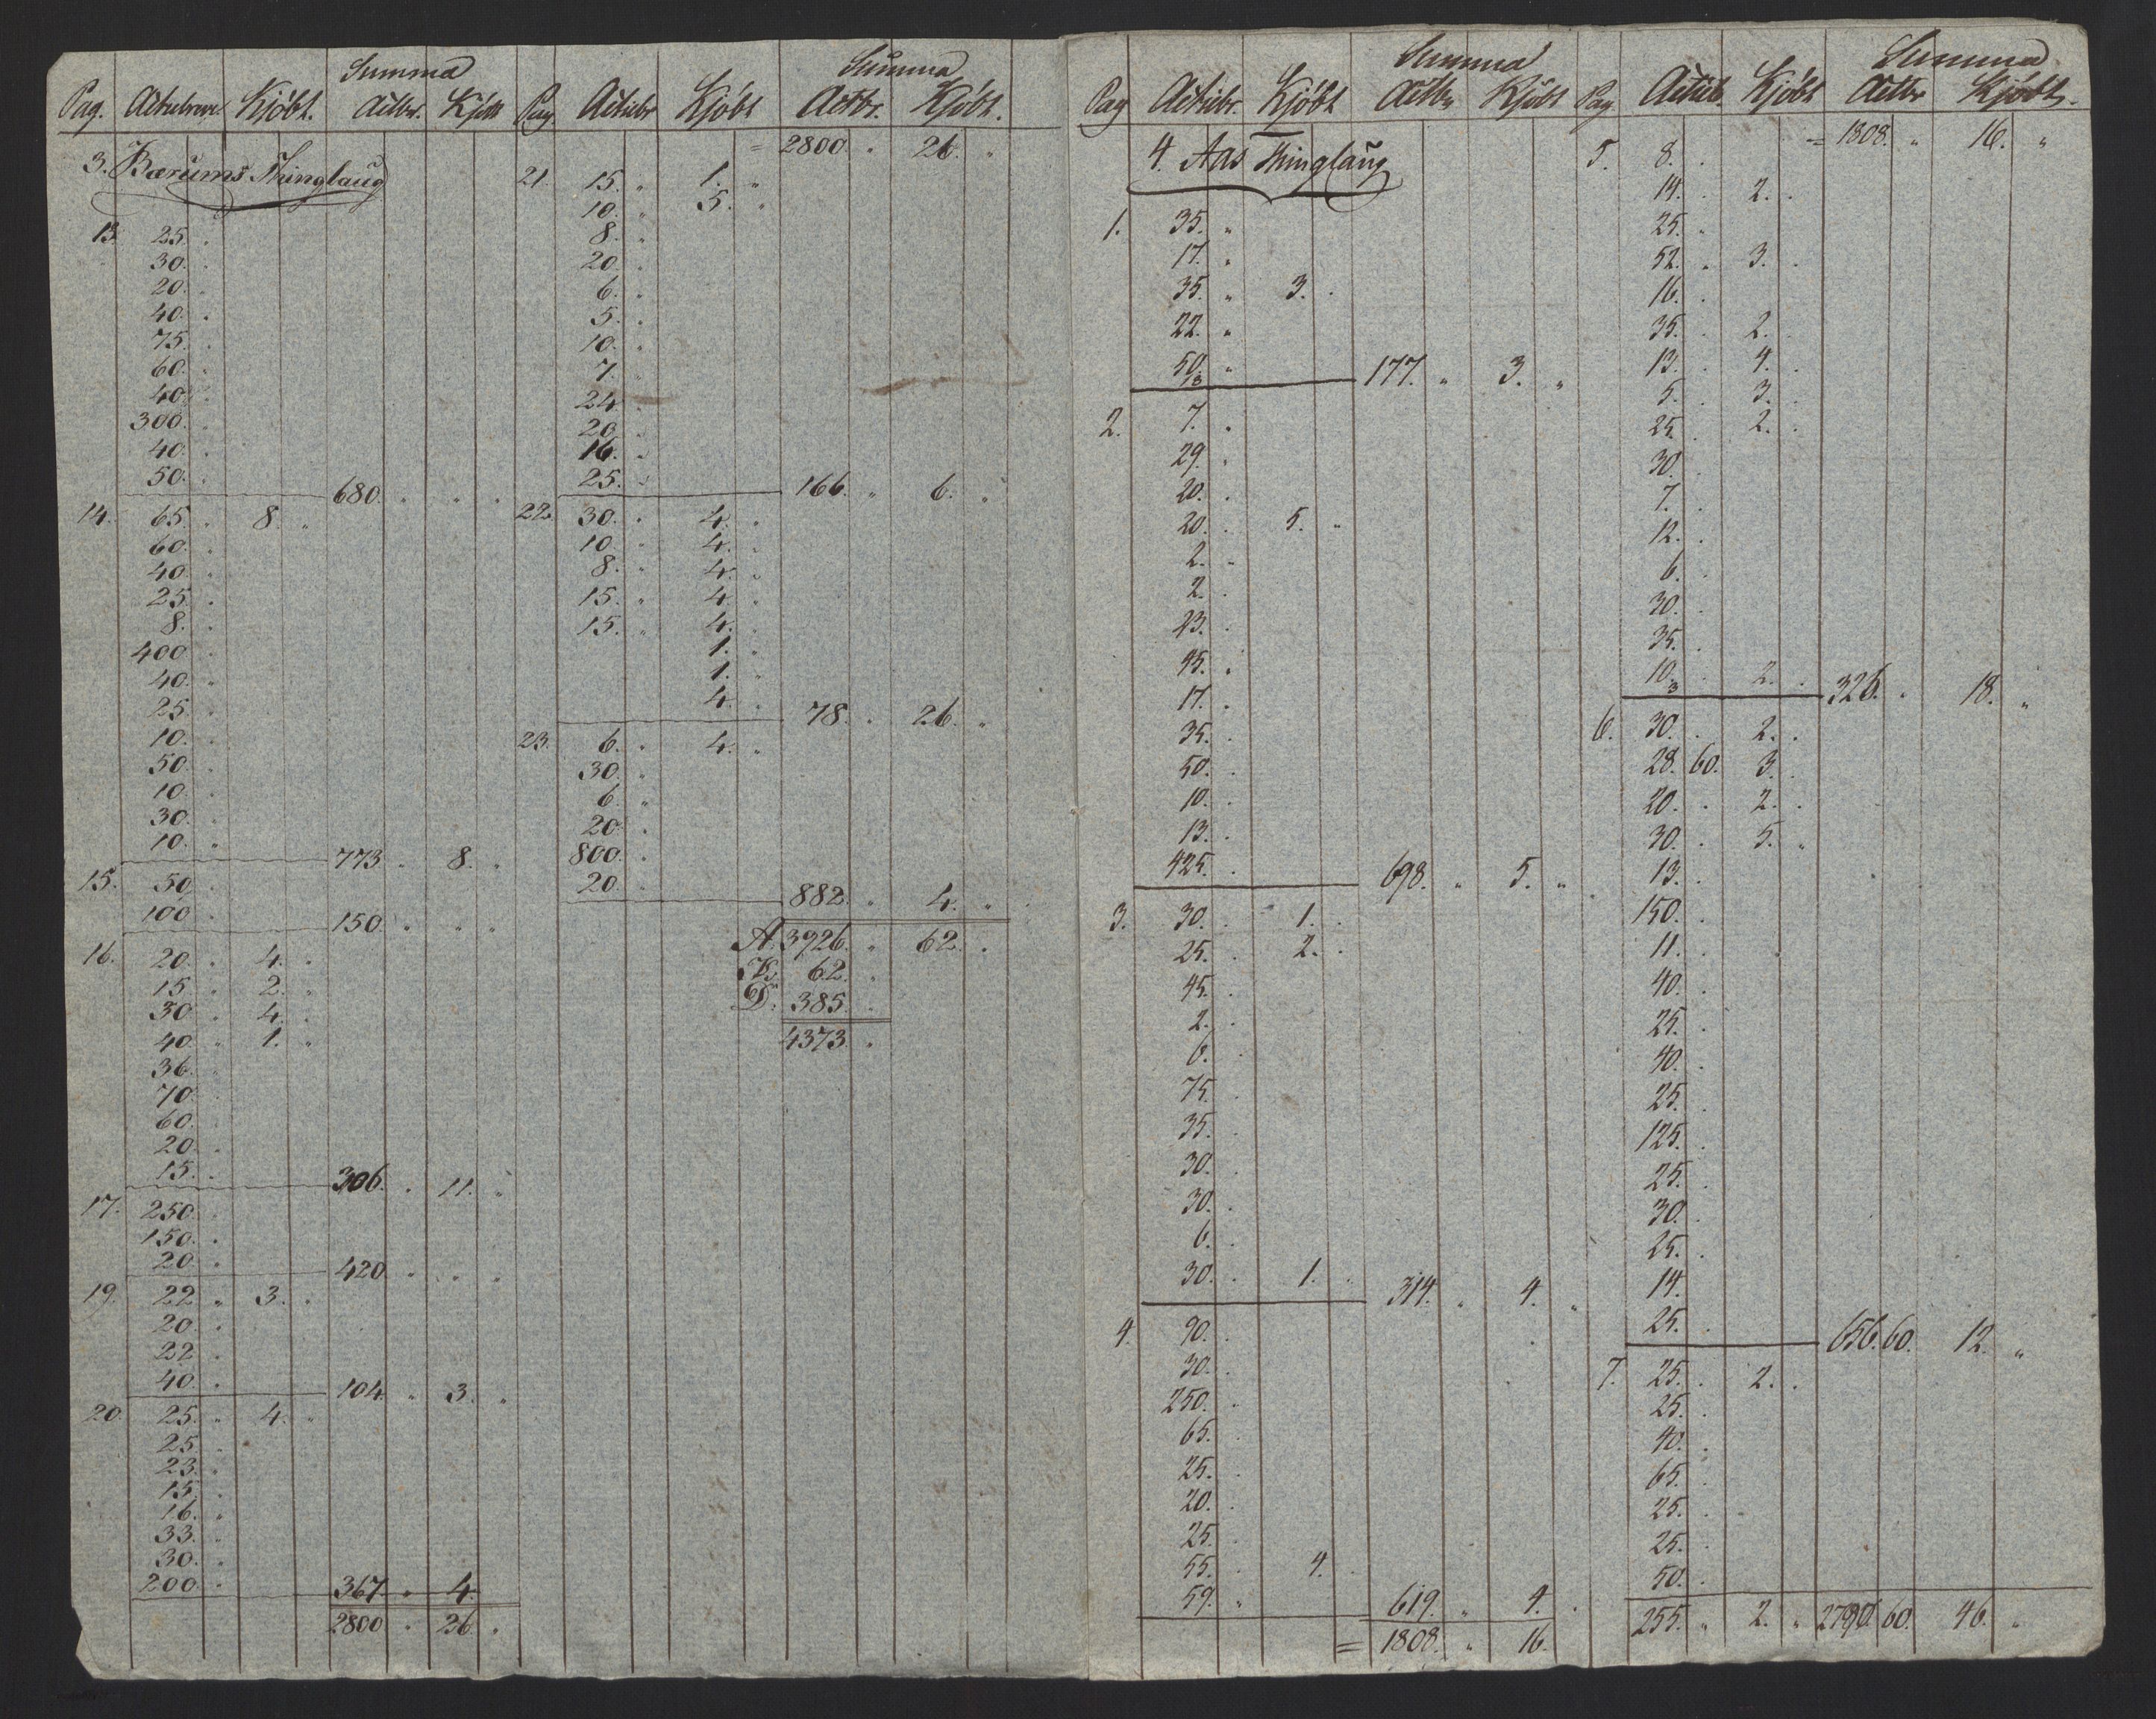 Summa
Pag. Actiebreve Kjöbt. Actbr. Kjöbt
3. Bærums Thinglaug
13. 25. "
30. "
20. "
40. "
75. "
60. "
40. "
300. "
40. "
50. " 680. " " "
14. 65. " 8. "
60. "
40. "
25. "
8. "
400 "
40. "
25. "
10. "
50. "
10. "
30. "
10. " 773 " 8. "
15. 50 "
100 " 150 " " "
16. 20. " 4. "
15 " 2. "
30 " 4. "
40. " 1. "
36. "
70 "
60. "
20 "
15. " 306. " 11. "
17. 250. "
150. "
20. " 420 " " "
19. 22 " 3. "
20. "
22 "
40. " 104. " 3. "
20. 25. " 4. "
25. "
23. "
15. "
16. "
33. "
30. "
200. " 367. " 4. "
2800 " 26 "
Summa
Pag. Actiebr Kjöbt Actbr. Kjöbt.
= 2800. " 26. "
21. 15. " 1. "
10. " 5. "
8. "
20. "
6. "
5. "
10. "
7. "
24. "
20. "
16. "
25. " 166. " 6. "
22. 30. " 4. "
10. " 4. "
8. " 4. "
15. " 4. "
15. " 4. "
1. "
1. "
4. " 78. " 26. "
23. 6. " 4. "
30. "
6. "
20 "
800. "
20. " 882. " 4. "
A. 3926. " 62. "
K. 62. "
D. 385. "
4373. "
Summa
Pag Actiebr. Kjöbt Actbr Kjöbt
4. Aas Thinglaug
1. 35. "
17. "
35. " 3. "
22. "
50. "
18 177. " 3. "
2. 7. "
29. "
20. "
20. " 5. "
2. "
2. "
23. "
45. "
17. "
35. "
50. "
10. "
13. "
425. " 698. " 5. "
3. 30. " 1. "
25. " 2. "
45. "
2. "
6. "
75. "
35. "
30. "
30. "
6. "
30. " 1. " 314. " 4. "
4. 90. "
30. "
250. "
65. "
25. "
20. "
25. "
55. " 4. "
59. " 619. " 4. "
= 1808. " 16.
Summa
Pag. Actieb. Kjöbt Actbr Kjöbt.
= 1808. " 16. "
5. 8. "
14. " 2. "
25. "
52. " 3. "
16. "
35. " 2. "
13. " 4. "
5. " 3. "
25. " 2. "
30. "
7. "
12. "
6. "
30. "
35. "
10. " 2. "
3 326. " 18. "
6. 30. " 2. "
28. 60. 3. "
20. " 2. "
30. " 5. "
13. "
150. "
11. "
40. "
25. "
40. "
25. "
125. "
25. "
30. "
25. "
14. "
25. " 656. 60. 12. "
7. 25. " 2. "
25. "
40. "
65. "
25. "
25. "
50. "
255. " 2. " 2790. 60. 46. "